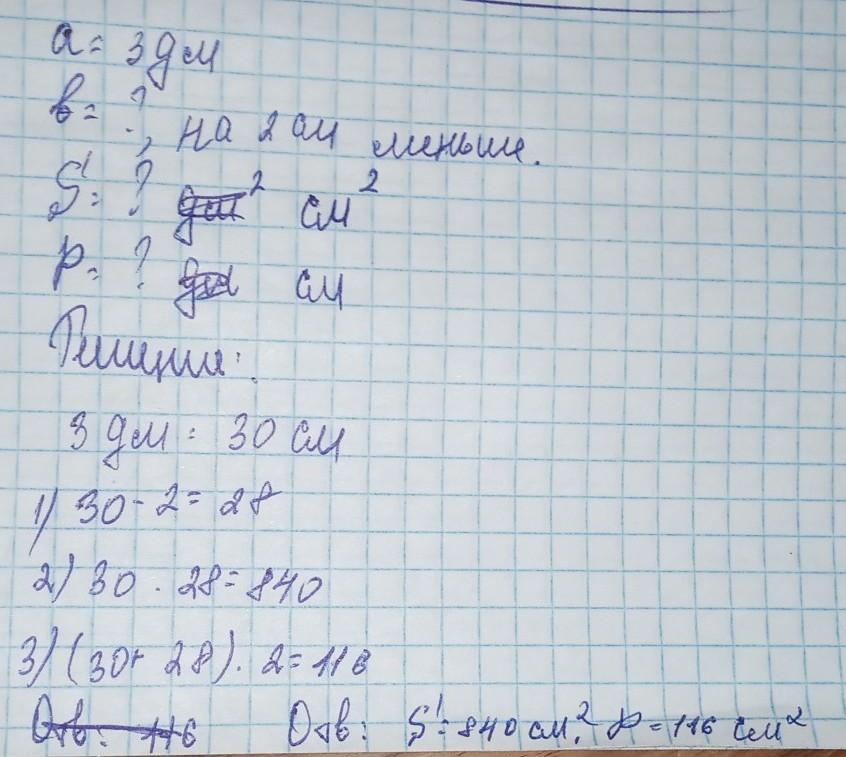 a = 3 дм
b = ?, на 2 см меньше.
S = ? дм² см²
P = ? дм см
Решение:
3 дм = 30 см
1) 30 - 2 = 28
2) 30 · 28 = 840
3) (30 + 28) · 2 = 116
Отв: 116 Отв: S = 840 см². P = 116 см²